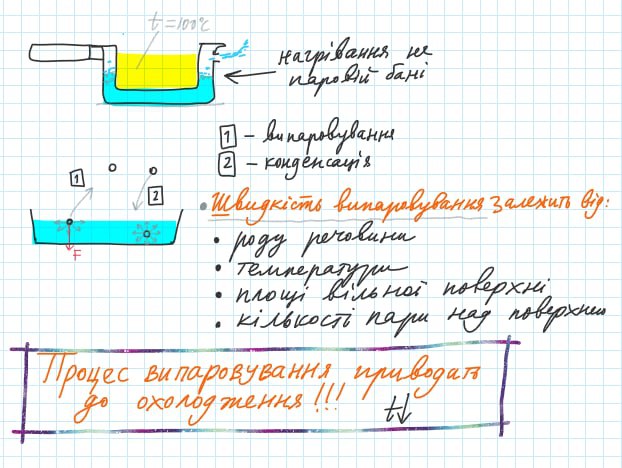 t=100°C
нагрівання на
паровій бані
1 – випаровування
2 – конденсація
1
2
F
• Швидкість випаровування залежить від:
• роду речовини
• температури
• площі вільної поверхні
• кількості пари над поверхнею
Процес випаровування приводить
до охолодження!!! t↓